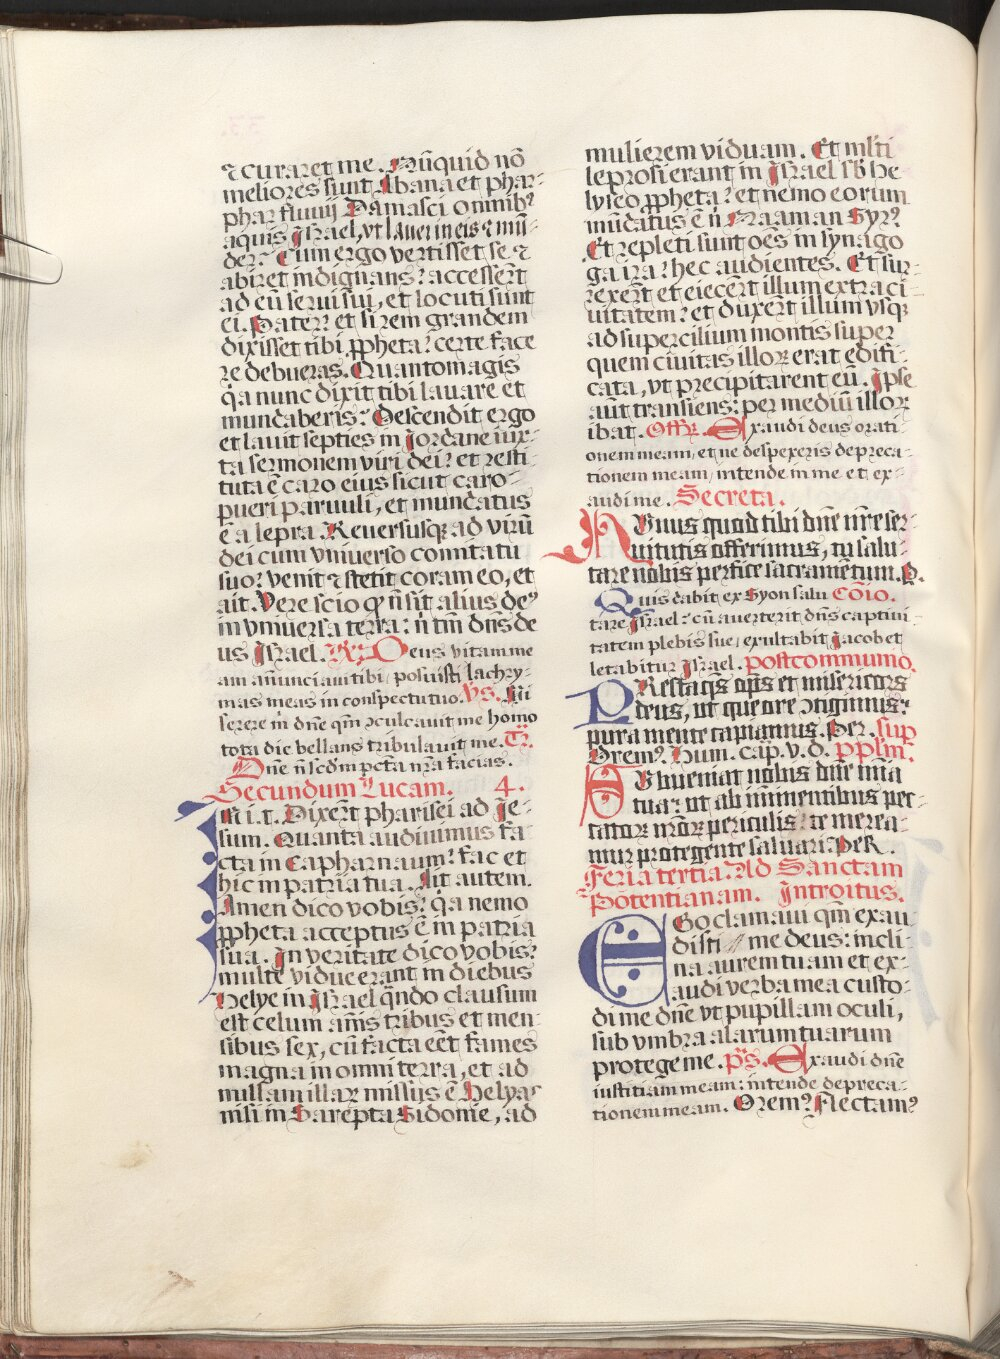 ⁊ curaret me. Nũquid nõ
meliores sunt Abana et phar-
phar fluuij Damasci omnibꝰ
aquis Israel, vt lauer in eis ⁊ mũ-
der? Cum ergo vertisset se ⁊
abiret indignans? accessẽrt
ad eũ serui sui, et locuti sunt
ei. Pater? et si rem grandem
dixisset tibi ꝓpheta? certe face
re debueras. Quantomagis
q̃a nunc dixit tibi lauare et
mundaberis? Descendit ergo
et lauit septies in Jordane iux-
ta sermonem viri dei? et resti-
tuta ẽ caro eius sicut caro-
pueri paruuli, et mundatus
ẽ a lepra. Reuersusqꝫ ad virũ
dei cum vniuerso comitatu
suo? venit ⁊ stetit coram eo, et
ait. Vere scio ꝙ ñ sit alius deꝰ
in vniuersa terra? ñ tm̃ dñs de
us Israel. R̃. Deus vitam me
am anũnciaui tibi, posuisti lachry-
mas meas in conspectu tuo. Vs. Mi
serere mi dñe qm̃ ↄculcauit me homo
tota die bellans tribulauit me. Tr̃.
Dñe ñ scd̃m pc̃ta nr̃a facias.
Secundum Lucam. 4.
In i. t. Dixẽrt pharisei ad Je-
sum. Quanta audiuimus fa-
cta in Capharnaum? fac et
hic in patria tua. Ait autem.
Amen dico vobis? q̃a nemo
ꝓpheta acceptus ẽ in patria
sua. In veritate dico vobis?
multe vidue erant in diebus
Helye in Israel q̃ndo clausum
est celum annis tribus et men-
sibus sex, cũ facta eẽt fames
magna in omni terra, et ad
nullam illaꝝ missus ẽ Helyas
nisi in Sarepta Sidonie, ad
mulierem viduam. Et ml̃ti
leprosi erant in Israel sb̃ he
lyseo ꝓpheta? et nemo eorum
mũdatus ẽ ñ Naaman Syrꝰ
Et repleti sunt oẽs in synago
ga ira? hec audientes. Et sur-
rexẽrt et eiecẽrt illum extra ci-
uitatem? et duxẽrt illum vsqꝫ
ad supercilium montis super
quem ciuitas illoꝝ erat edifi-
cata, vt precipitarent eũ. Ipse
aũt transiens? per mediũ illoꝝ
ibat. Offr̃. Exaudi deus orati-
onem meam, et ne despexeris depreca-
tionem meam, intende in me et ex-
audi me. Secreta.
Munus quod tibi dñe nr̃e ser-
uitutis offerimus, tu salu-
tare nobis perfice sacramẽtum. P.
Quis dabit ex Syon salu Cõio.
tare Israel? cũ auerterit dñs captiui-
tatem plebis sue, exultabit Jacob et
letabitur Israel. Postcommunio.
PRestaq̃s oꝑs et misericors
deus, ut que ore ↄtigimus?
pura mente capiamus. Per. sup
Oremꝰ. Hum. cap. v. d. pplm̃.
SUbueniat nobis dñe mĩa
tua? ut ab imminentibus pec-
catoꝝ nr̃oꝝ periculis? te merea-
mur protegente saluari. Per.
Feria tertia. Ad Sanctam
Potentianam. Introitus.
EGo clamaui qm̃ exau
disti me deus: incli-
na aurem tuam et ex-
audi verba mea custo-
di me dñe vt pupillam oculi,
sub vmbra alarum tuarum
protege me. ps. Exaudi dñe
iustitiam meam: intende depreca-
tionem meam. Oremꝰ Flectamꝰ